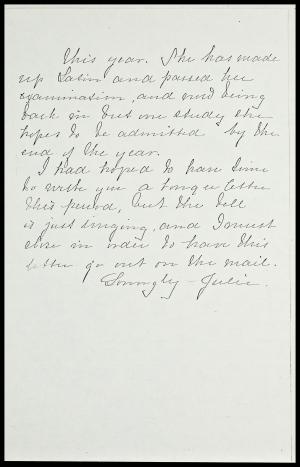 this year. She has made
up Latin and passed her
examination, and now being
back in but one study she
hopes to be admitted by the
end of the year.
I had hoped to have time
to write you a longer letter
this period, but the bell
is just ringing, and I must
close in order to have this
letter go out on the mail.
Lovingly - Julia.